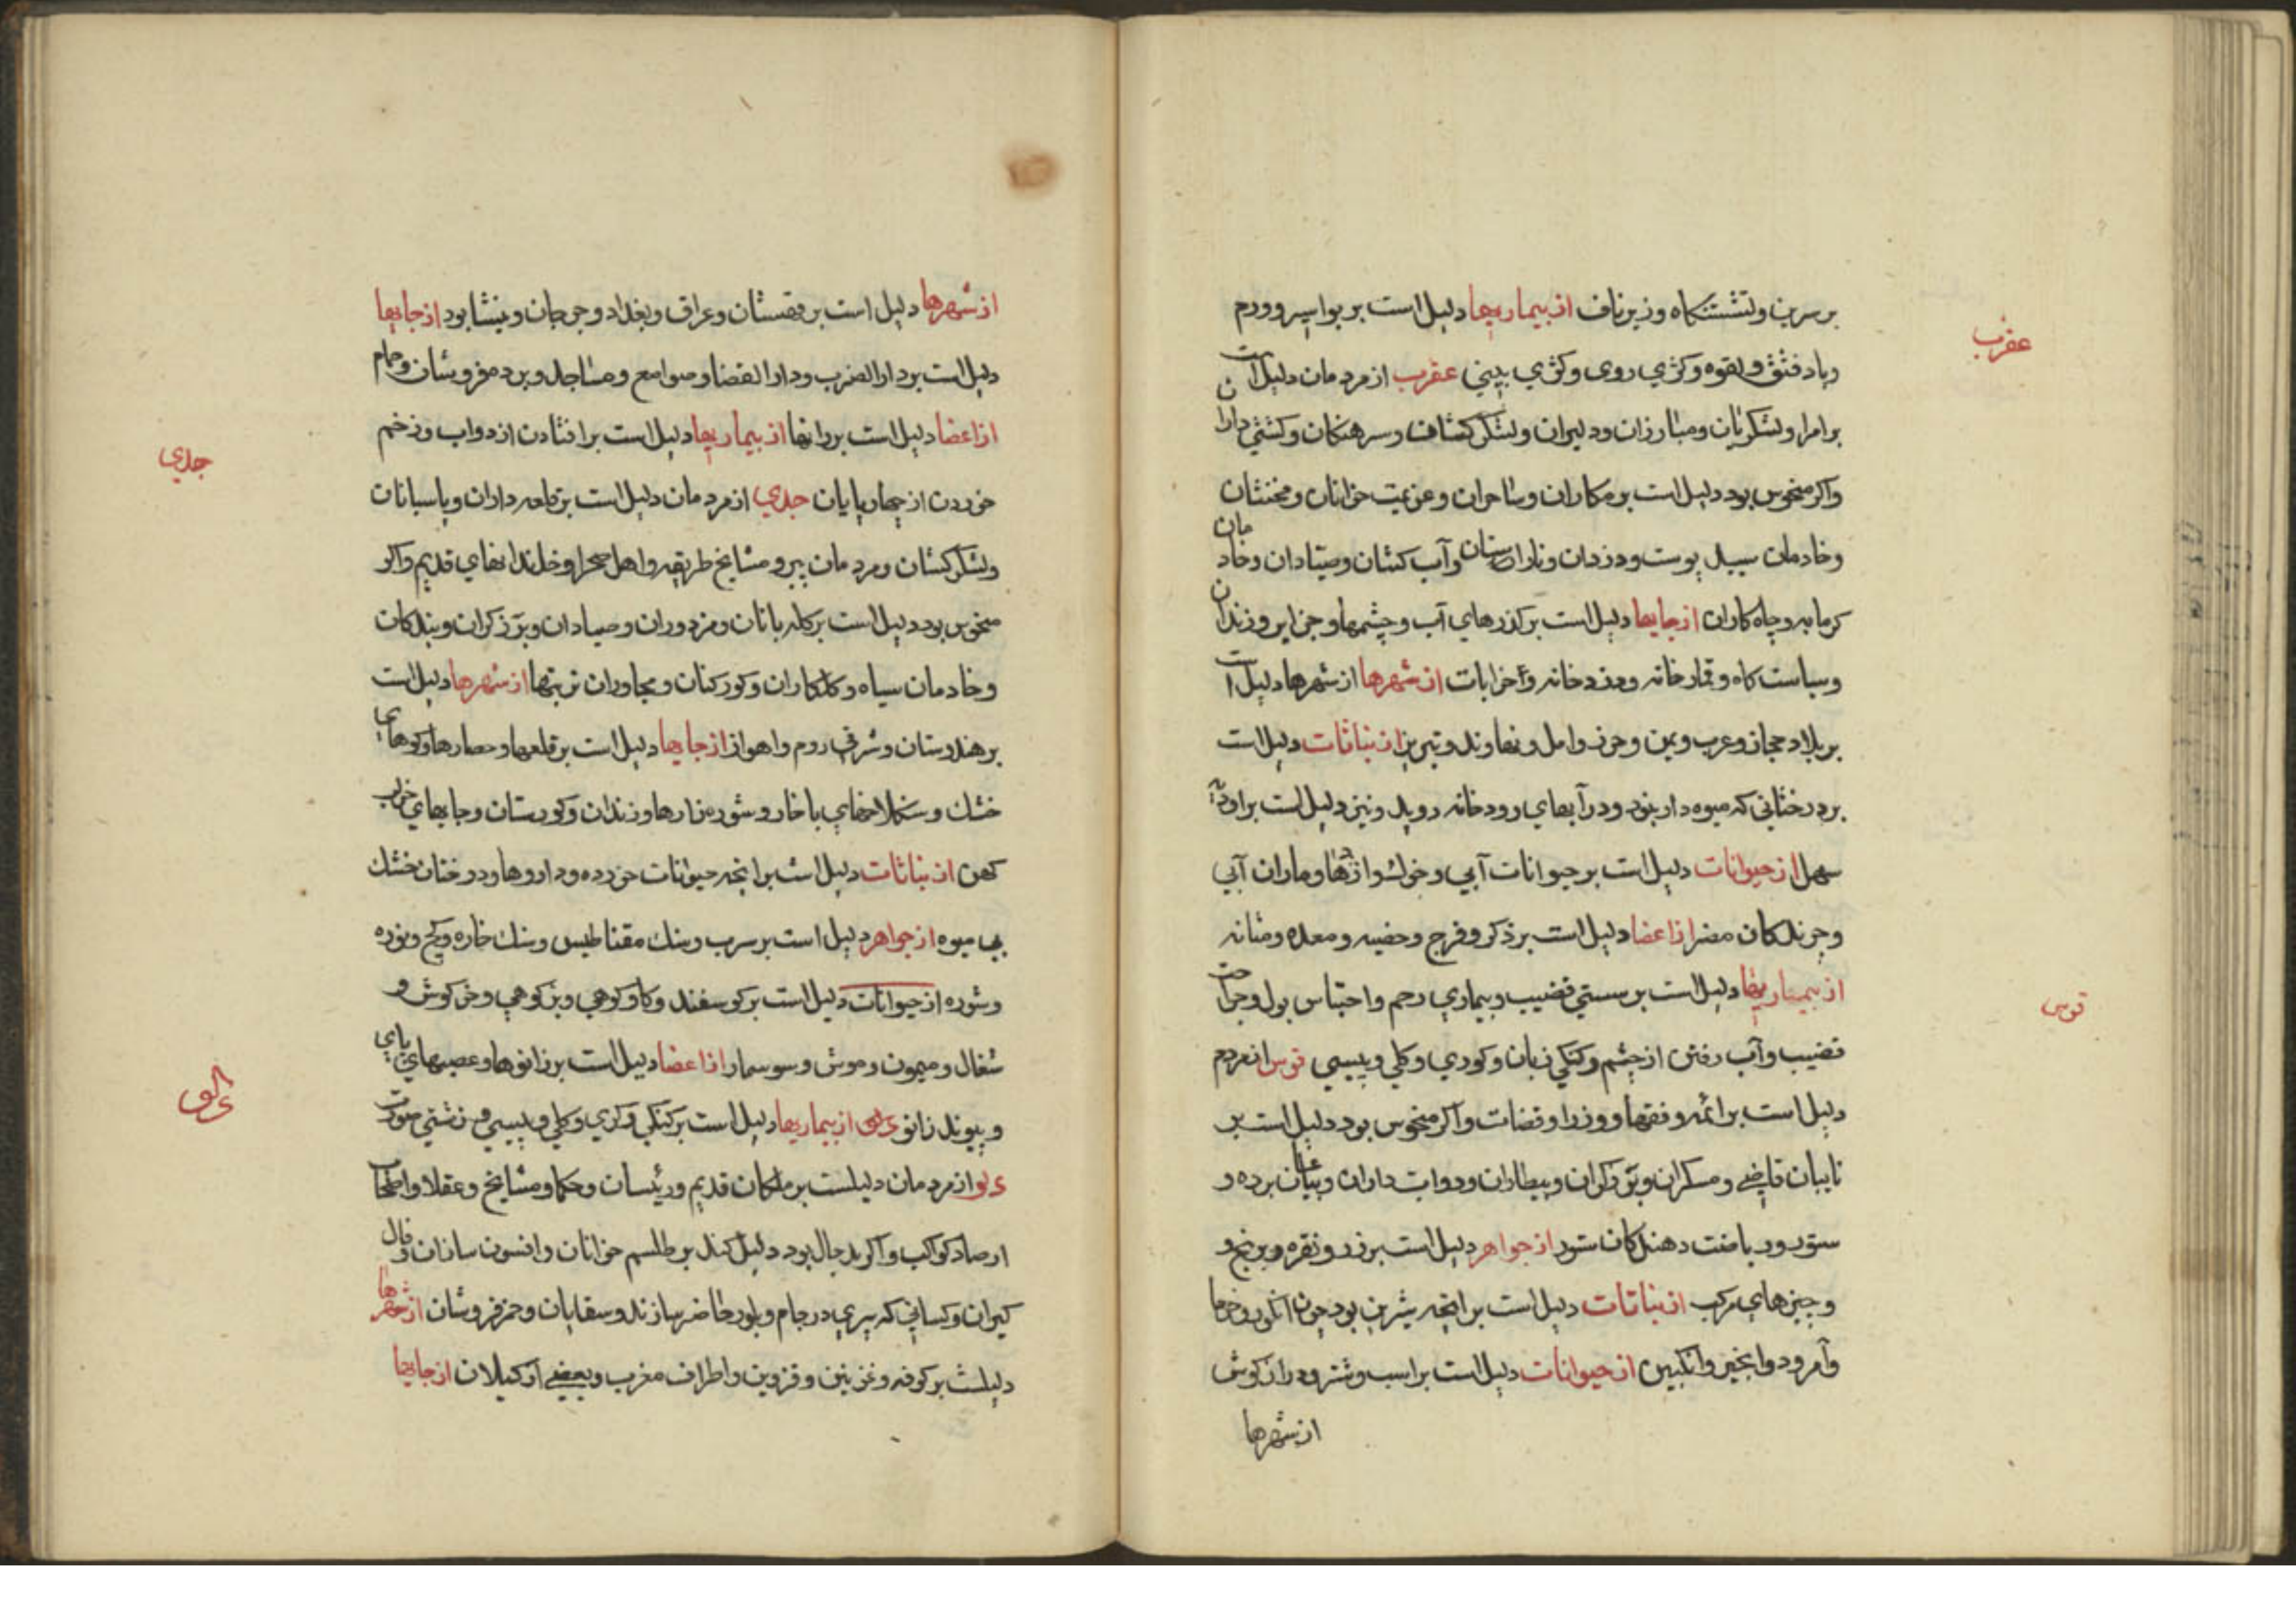 بر سرین و نشستنگاه و زیر ناف از بیماریها دلیل است بر بواسیر و ورم
وباد فتق و لقوه و کژی روی و کژی بینی عقرب از مردمان دلیل است
عقرب
بر امرا و لشکریان و مبارزان و دلیران و لشکر کشان و سرهنکان و کشتی داران
واکر منحوس بود دلیل است بر مکاران و ساحران و عزیمت خوانان و مخنثان
وخادمان سپید پوست و دزدان و ناراستان و آب کشان و صیادان و خادمان
کرمابه و چاه کاران از جایها دلیل است بر کذرهای آب و چشمها و جزایر و زندان
وسیاست کاه و قمارخانه و دزدخانه و خرابات از شهرها از شهرها دلیل است
بر بلاد حجاز و عرب و یمن و خزر و امل و نهاوند و تبریز از نباتات دلیل است
بر درختانی که میوه دار بنود و در آبهای رودخانه روید و نیز دلیل است بر
سهل از حیوانات دلیل است بر حیوانات آبی و اژدها و ماران آبی
وچرندکان مضر از اعضا دلیل است بر ذکر و فرج و خصیه و معده و مثانه
از بیماریها دلیل است بر سستی قضیب و بیماری رحم و احتباس بول و جراحت
قضیب و آب رفتن از چشم و کنکی زبان و کوری و کلی و پیسی قوس از مردم
قوس
دلیل است بر ائمه و فقها و وزرا و قضات و اکر منحوس بود دلیل است بر
نایبان قاضی و مسکران و برزکران و بیطاران و دواب داران و برده و
ستور و ریاضت دهندکان ستور از جواهر دلیل است بر زر و نقره و برنج و
وچیزهای مرکب از نباتات دلیل است بر انچه شیرین بود چون انکور و خرما
وآمرود و انجیر و انکبین از حیوانات دلیل است بر اسب و شتر و دراز کوش
از شهرها
از شهرها دلیل است بر قهستان و عراق و بغداد و جرجان و نیشابور از جایها
دلیل است بر دار الضرب و دار القضا و صوامع و مساجد و بر و حمام
از اعضا دلیل است بر رانها از بیماریها دلیل است بر افتادن از دواب و زخم
خوردن از چهارپایان جدی از مردمان دلیل است بر قلعه داران و پاسبانان
جدی
ولشکر کشان و مردمان پیر و مشایخ طریقه و اهل صحرا و خاندانهای قدیم و اکر
منحوس بود دلیل است بر کله بانان و مزدوران و صیادان و برزکران و بندکان
وخادمان سیاه و کلکاران و کورکنان و مجاوران تربتها از شهرها دلیل است
بر هندوستان و شرقی روم و اهواز از جایها دلیل است بر قلعها و حصارها و کوههای
خشک و سنکلاخهای با خار و شوره زارها و زندان و کورستان و جایهای خراب
کهن از نباتات دلیل است بر انچه حیوانات خورده و داروها و درختان خشک
بی میوه از جواهر دلیل است بر سرب و سنک مقناطیس و سنک خاره و کچ و نوره
وشوره از حیوانات دلیل است بر کوسفند و کاو کوهی و بز کوهی و خرکوش و
شغال و میمون و موش و سوسمار از اعضا دلیل است بر زانوها و عصبهای پای
وپیوند زانو از بیماریها دلیل است بر کنکی و کری و کلی و پیسی و زشتی صورت
دلو
دلو از مردمان دلیلست بر ملکان قدیم و رئیسان و حکما و مشایخ و عقلا و اصحاب
ارصاد کواکب و اکر بد حال بود دلیل کند بر طلسم خوانان و افسون سازان و فال
کیران و کسانی که پری در جام و بلور حاضر سازند و سقایان و خمر فروشان از شهرها
دلیلست بر کوفه و غزنین و قزوین و اطراف مغرب و بعضی از کیلان از جایها